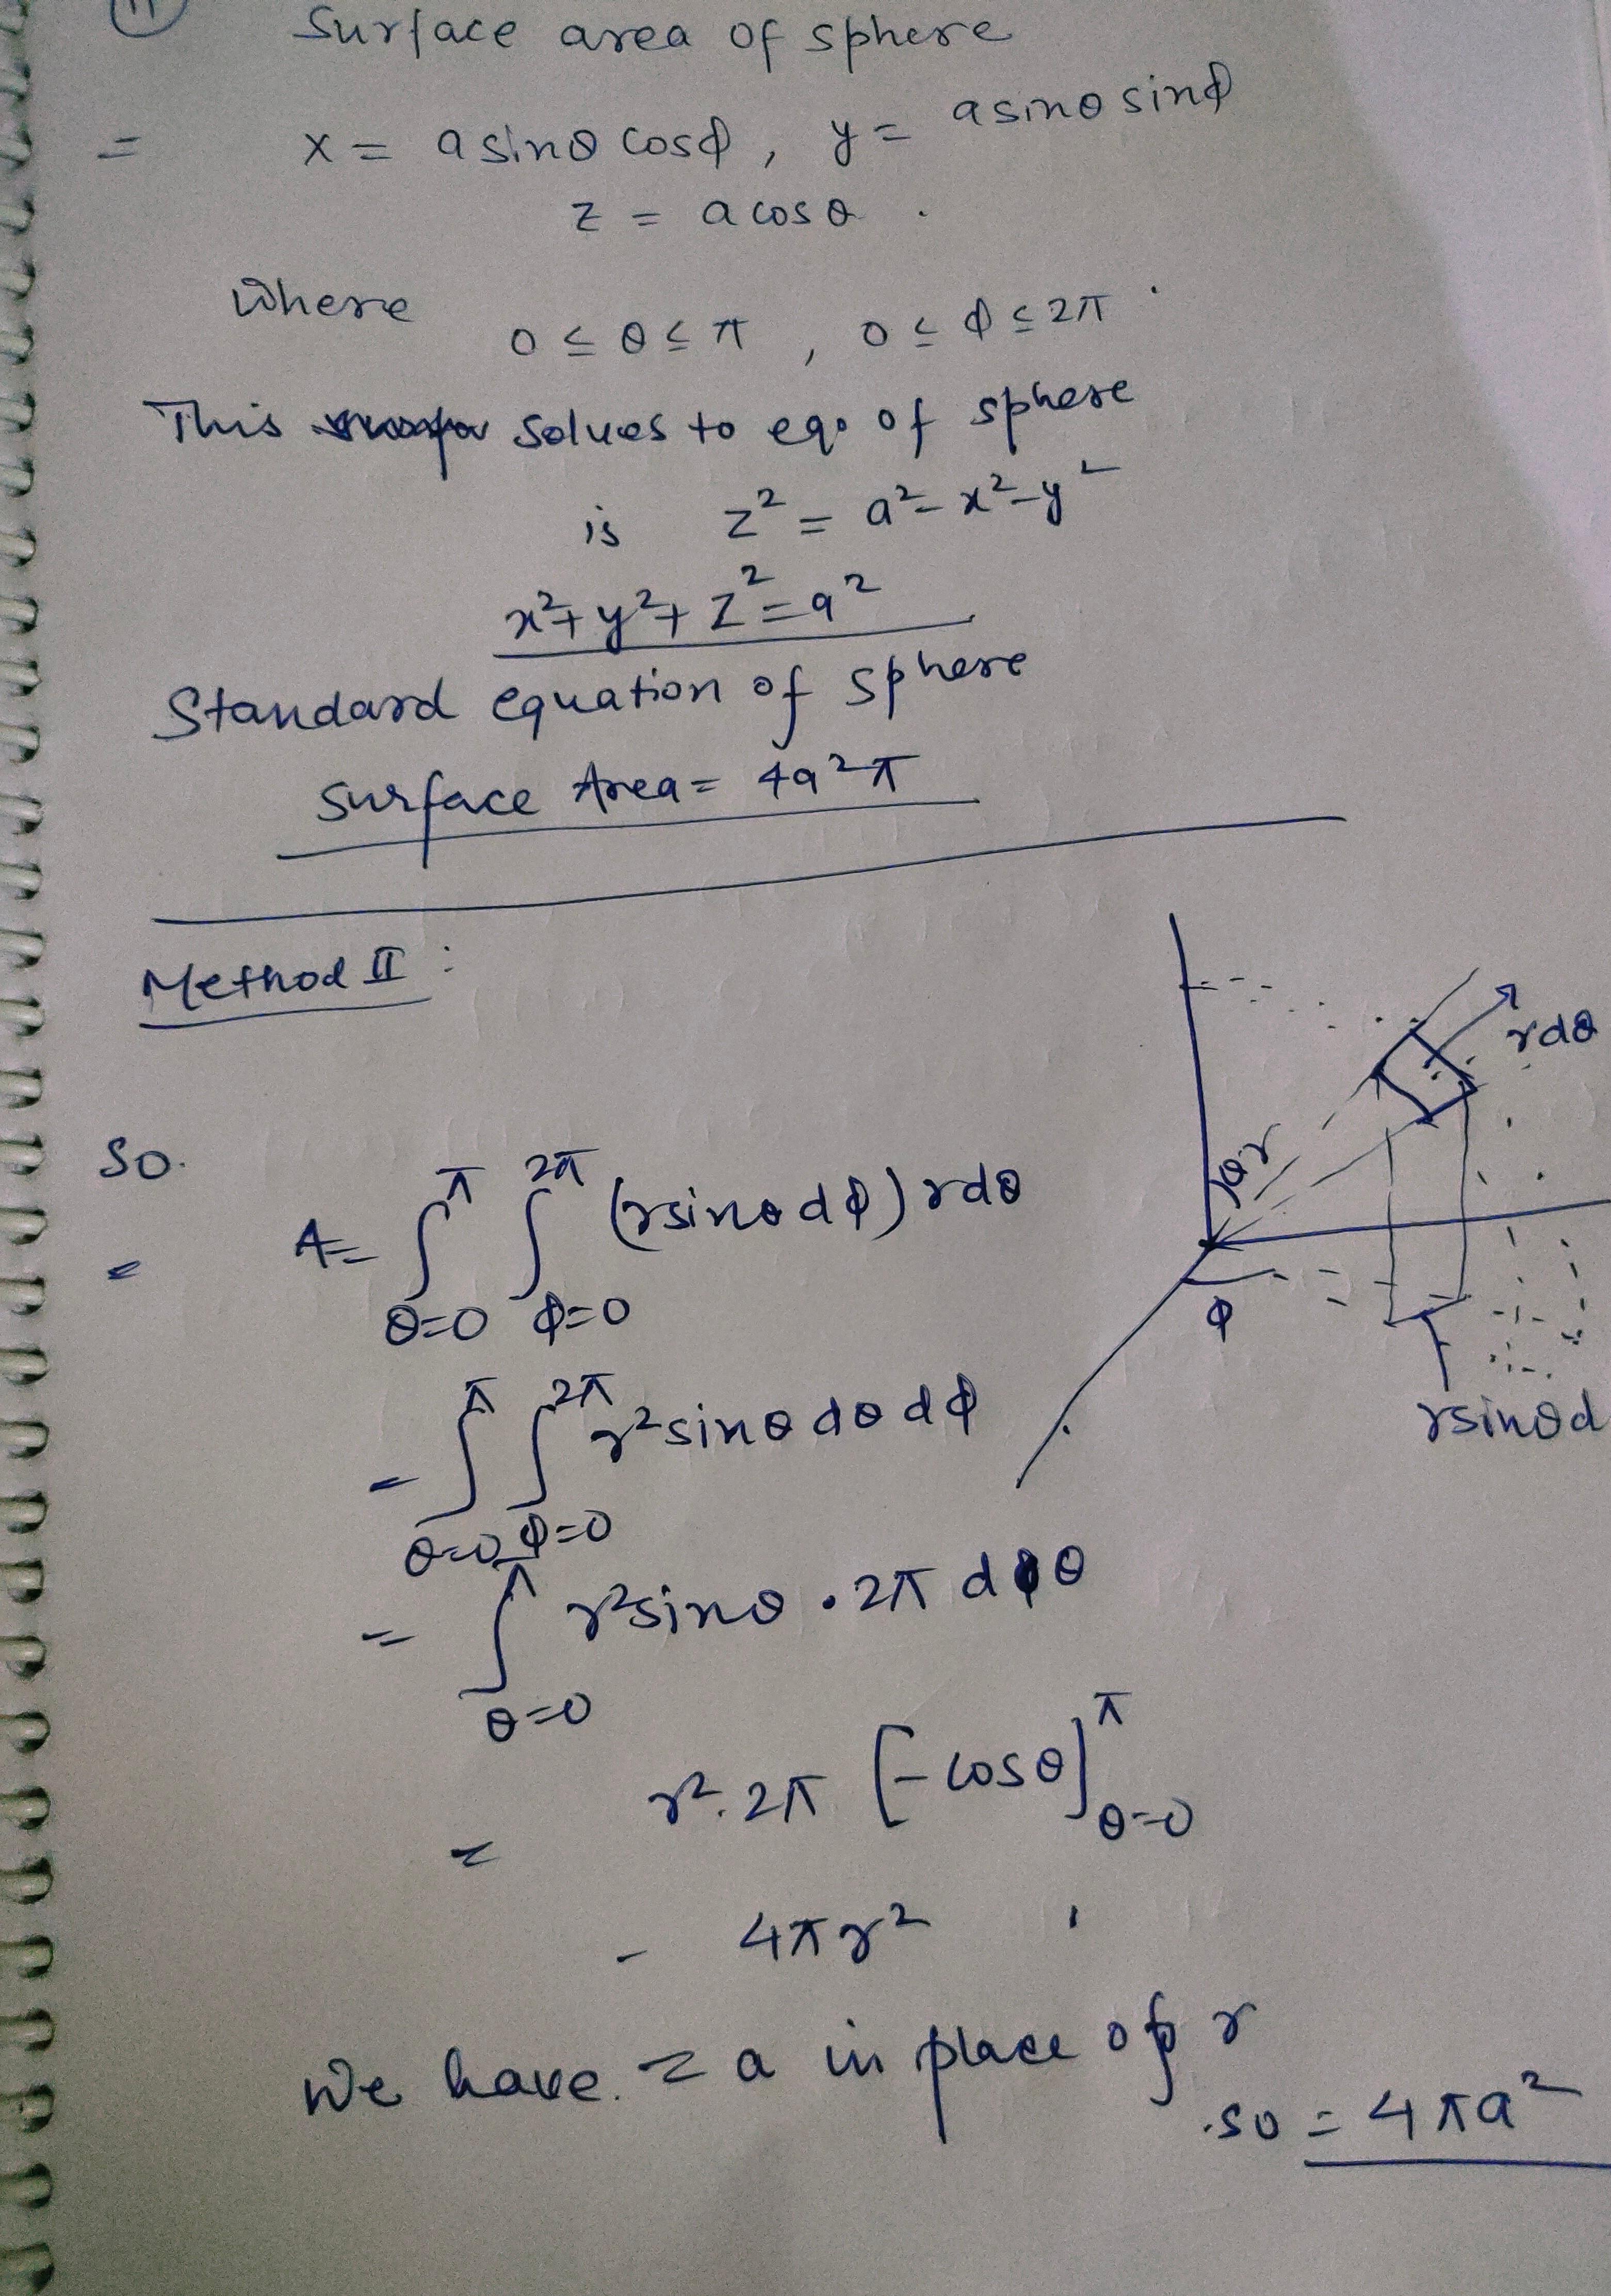 11 Surface area of sphere
= x = a sinθ cosϕ, y = a sinθ sinϕ
z = a cosθ .
Where 0 ≤ θ ≤ π , 0 ≤ ϕ ≤ 2π .
This solves to eqo of sphere
is z² = a² - x² - y²
x² + y² + z² = a²
Standard equation of sphere
Surface Area = 4a²π
Method II :
rdθ
θ r
ϕ
rsinθd
So.
= A = ∫_{θ=0}^{π} ∫_{ϕ=0}^{2π} (rsinθdϕ) rdθ
= ∫_{θ=0}^{π} ∫_{ϕ=0}^{2π} r² sinθ dθ dϕ
= ∫_{θ=0}^{π} r² sinθ . 2π dθ
= r². 2π [- cosθ]_{θ=0}^{π}
- 4πr²
We have. = a in place of r
.so = 4πa²